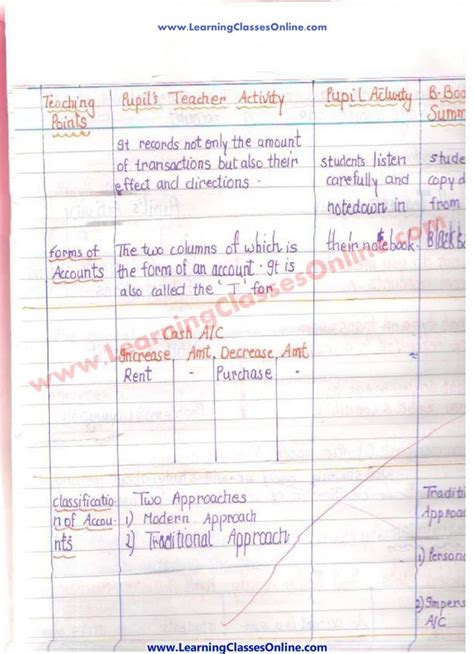 www.LearningClassesOnline.com
Teaching Points
Pupil's Teacher Activity
Pupil Activity
B-Boa
Summ
It records not only the amount
of transactions but also their
effect and directions.
students listen
carefully and
notedown in
their notebook.
stude
copy d
from
Blackb
forms of
Accounts
The two columns of which is
the form of an account. It is
also called the 'T' for
www.LearningClassesOnline.com
Cash A/C
Increase Amt. Decrease Amt
Rent - Purchase -
classificatio
n of Accou-
nts
Two Approaches
1) Modern Approach
2) Traditional Approach
Traditi
Approa
1) Persona
2) Impers
A/C
www.LearningClassesOnline.com